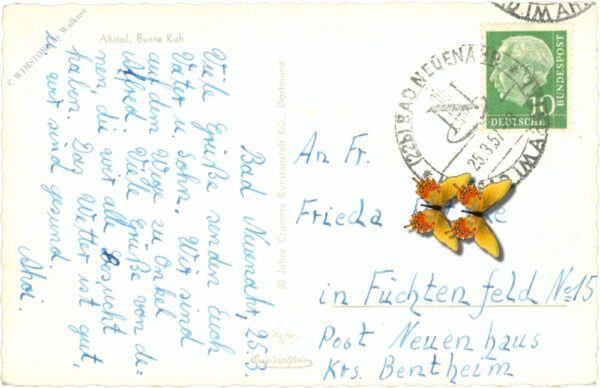 © WIMSTORE - Walkner
Ahrtal, Bunte Kuh
Bad Neuenahr, 25.3.
Viele Grüße senden Euch
Vater u. Sohn. Wir sind
auf dem Wege zu Onkel
Alfred. Viele Grüße von de-
nen, die wir alle besucht
haben. Das Wetter ist gut,
wir sind gesund
Ahoi.
50 Jahre Cramers Kunstanstalt KG., Dortmund
Originalfoto
(22b) BAD NEUENAHR
25.3.57
10
DEUTSCHE
BUNDESPOST
An Fr.
Frieda
in Füchtenfeld No 15
Post Neuenhaus
Krs. Bentheim